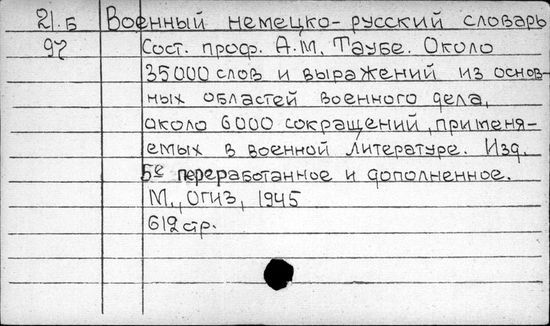 21.Б Военный немецко-русский словарь
97 Сост. проф. А.М. Таубе. Около
35000 слов и выражений из основ-
ных областей военного дела,
около 6000 сокращений, применя-
емых в военной литературе. Изд.
5е переработанное и дополненное.
М., ОГИЗ, 1945
612 стр.